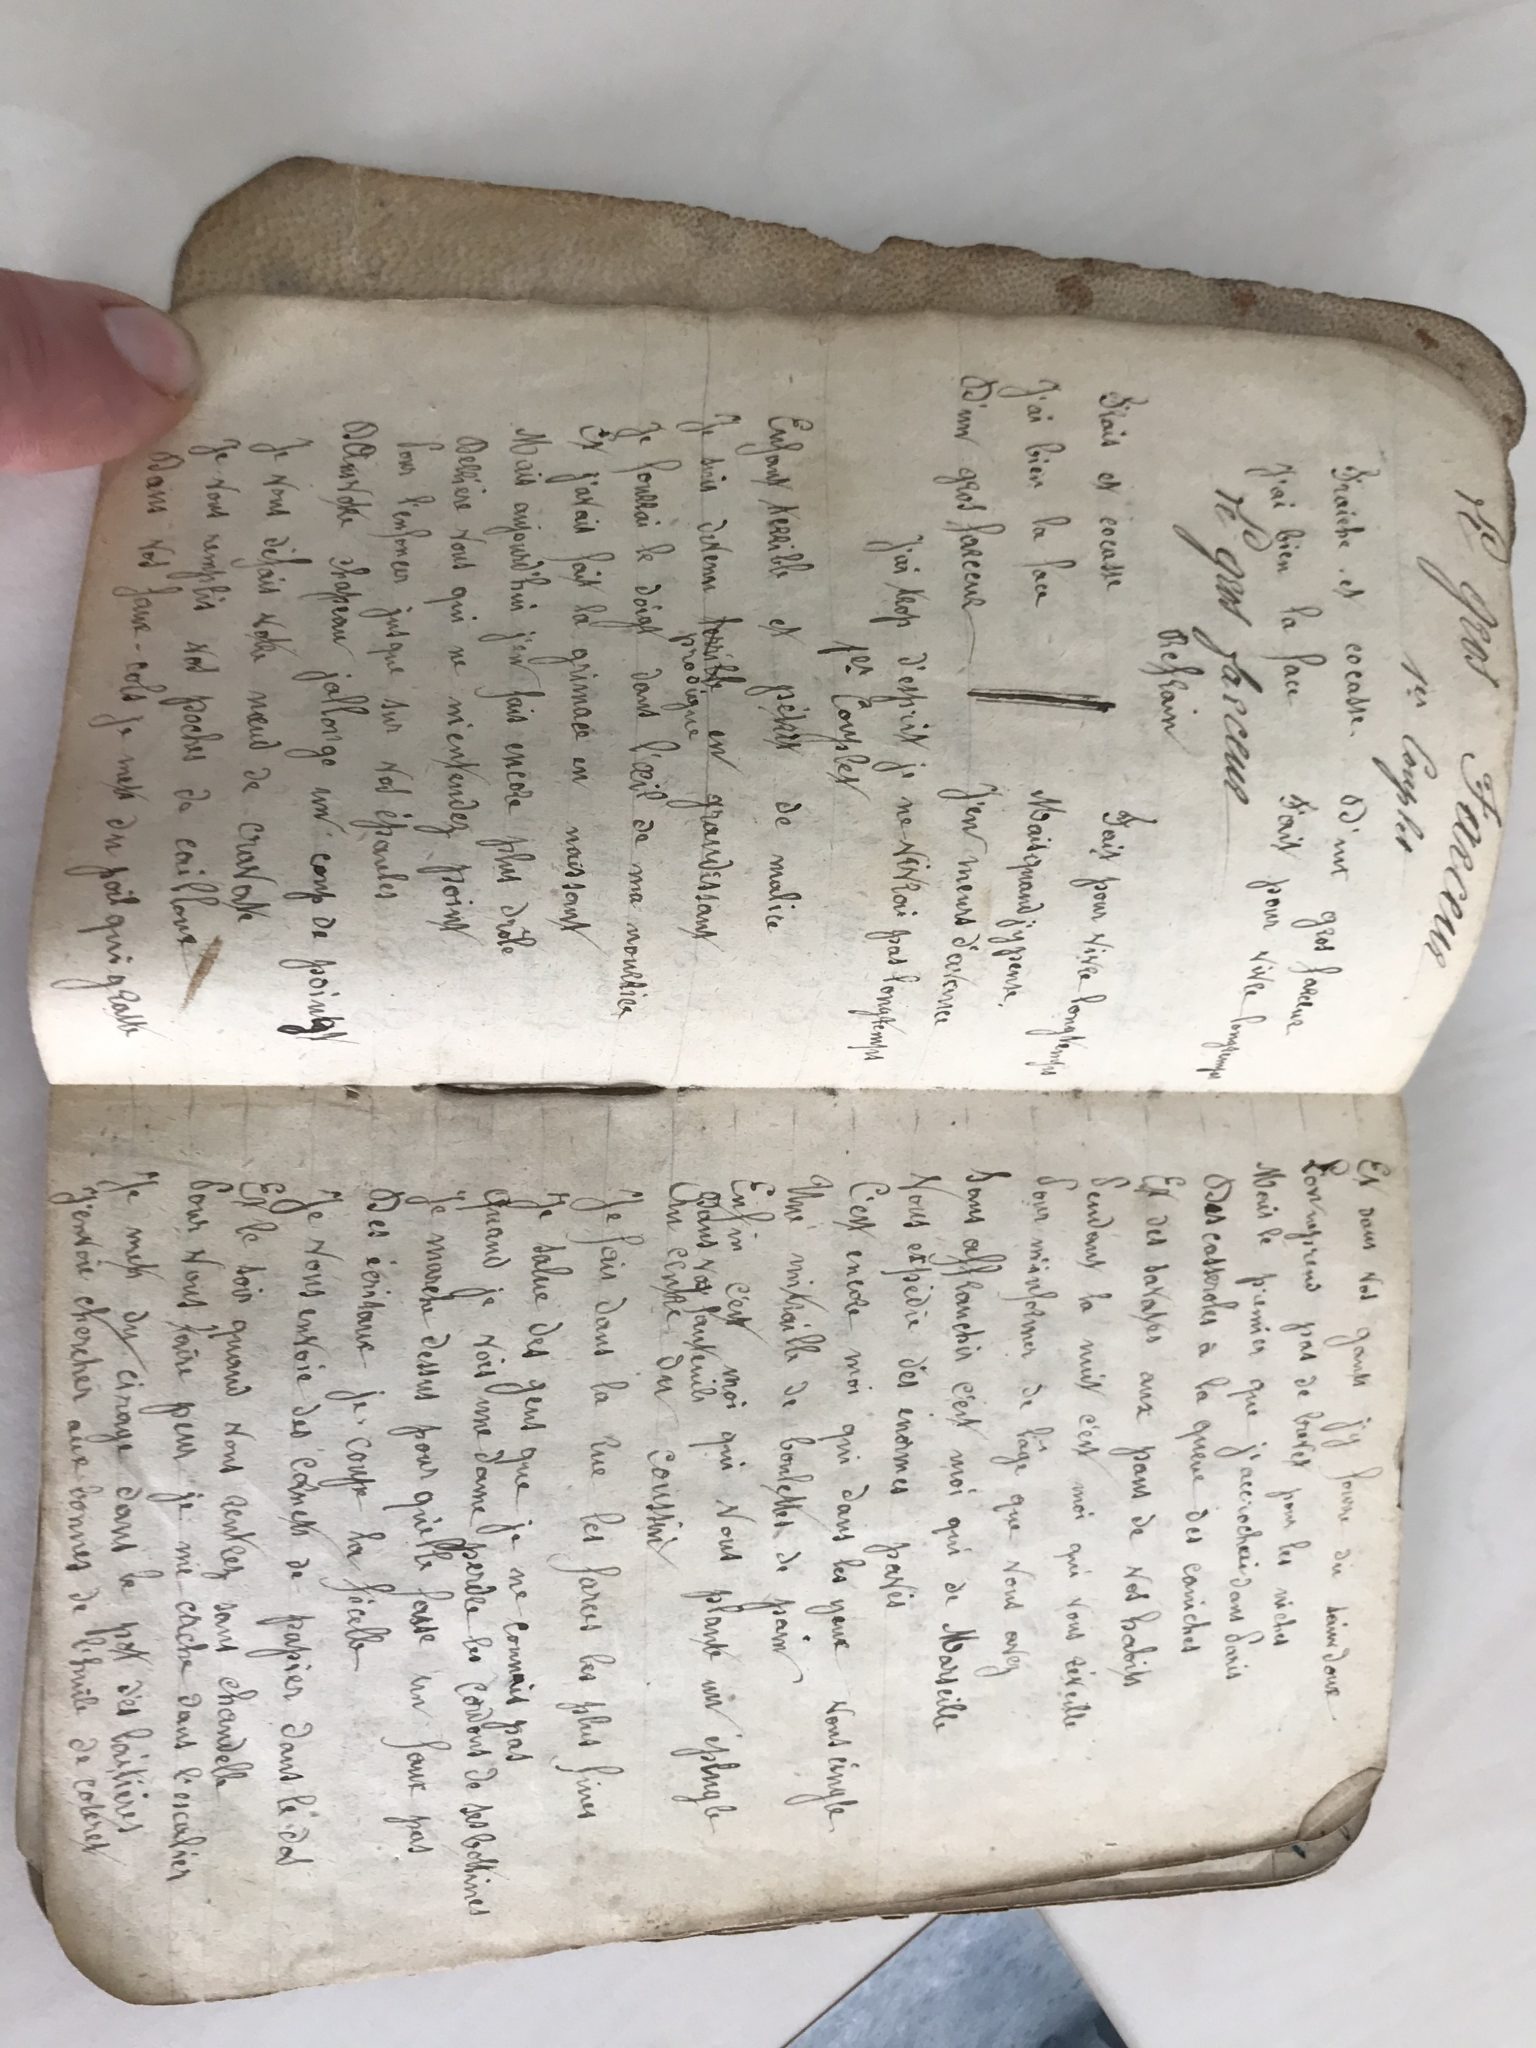 Le gros Farceur
1er Couplet
Fraiche et cocasse. D'un gros farceur
J'ai bien la face Fait pour vivre longtemps
Le gros farceur
Refrain
Frais et cocasse Fait pour vivre longtemps
J'ai bien la face Mais quand j'y pense.
D'un gros farceur J'en meurs d'avance
J'ai trop d'esprit je ne vivrai pas longtemps
1er Couplet
Enfant terrible et pétrit de malice
Je suis devenu terrible en grandissant
prodigue
Je fourrai le doigt dans l'œil de ma nourrice
Et j'avais fait la grimace en naissant
Mais aujourd'hui j'en fais encore plus drôle
Derrière vous qui ne m'entendez point
Pour l'enfoncer jusque sur vos épaules
D'un votre chapeau j'allonge un coup de poingt
Je vous défais votre nœud de cravate
Je vous remplis vos poches de cailloux
Dans vos faux-cols je mets du poil qui gratte
Et dans vos gants j'y fourre du saindoux
L'on n'prend pas de brevet pour les niches
Mais le premier que j'accrochai dans Paris
Des casseroles à la queue des caniches
Et des savates aux pans de vos habits
Pendant la nuit c'est moi qui vous réveille
Pour m'informer de l'âge que vous avez
Sans affranchir c'est moi qui de Marseille
Vous expédie des énormes pavés
C'est encore moi qui dans les yeux vous cingle
Une mitraille de boulettes de pain
Enfin c'est moi qui vous plante un épingle
Dans vos fauteuils
Au centre du coussin
Je fais dans la rue les farces les plus fines
Je salue des gens que je ne connais pas
Quand je vois une dame perdre les cordons de ses bottines
Je marche dessus pour qu'elle fasse un faux pas
Des écritaux je coupe la ficelle
Je vous envoie des cornets de papier dans le dos
Et le soir quand vous rentrez sans chandelle
Pour vous faire peur je me cache dans l'escalier
Je mets du cirage dans le pot des laitières
J'envoie chercher aux bonnes de l'huile de cotret